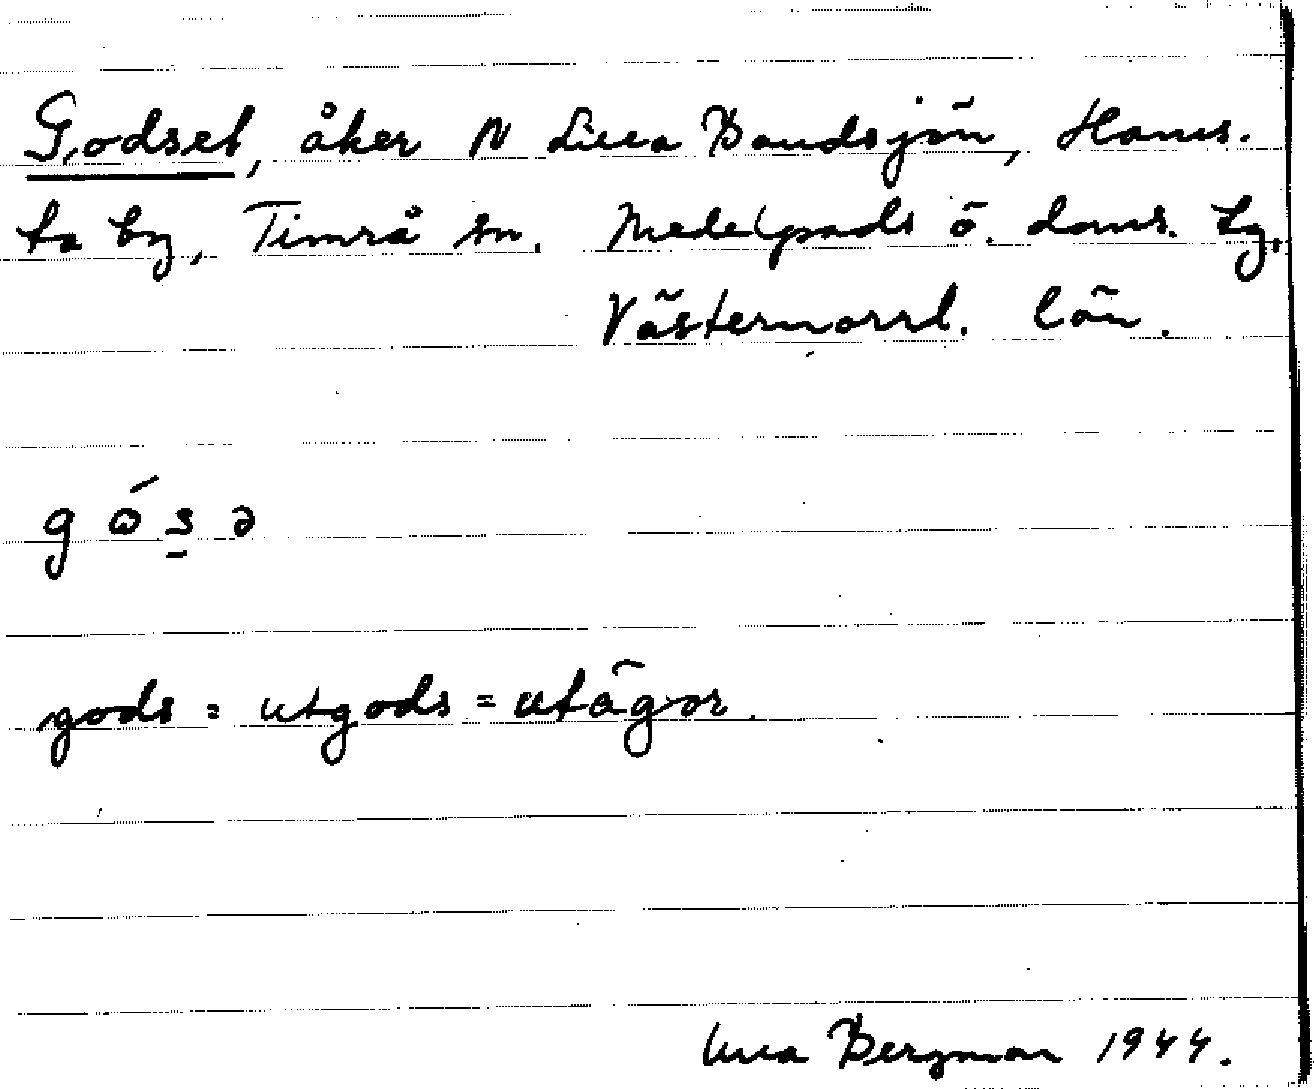 Godset, åker N Lilla Bandsjön, Hams-
ta by, Timrå sn. Medelpads ö. doms. tg.
Västernorrl. län.
gósə
gods = utgods = utägor.
Bergman 1944.